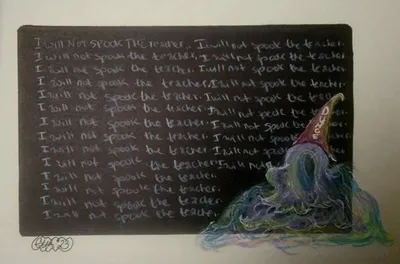 I will NoT spook THE Teacher. I will not spook the teacher.
I will not spook the teacher. I will not spook the teacher.
I will not spook the teacher. I will not spook the teacher.
I will not spook the teacher. I will not spook the teacher.
I will not spook the teacher. I will not spook the teacher.
I will not spook the teacher. I will not spook the teacher.
I will not spook the teacher. I will not spook the teacher.
I will not spook the teacher. I will not spook the
I will not spook the teacher. I will not spook the
I will not spook the teacher. I will not
I will not spook the teacher.
I will not spook the teacher.
I will not spook the teacher.
I will not spook the teacher.
DUNCE